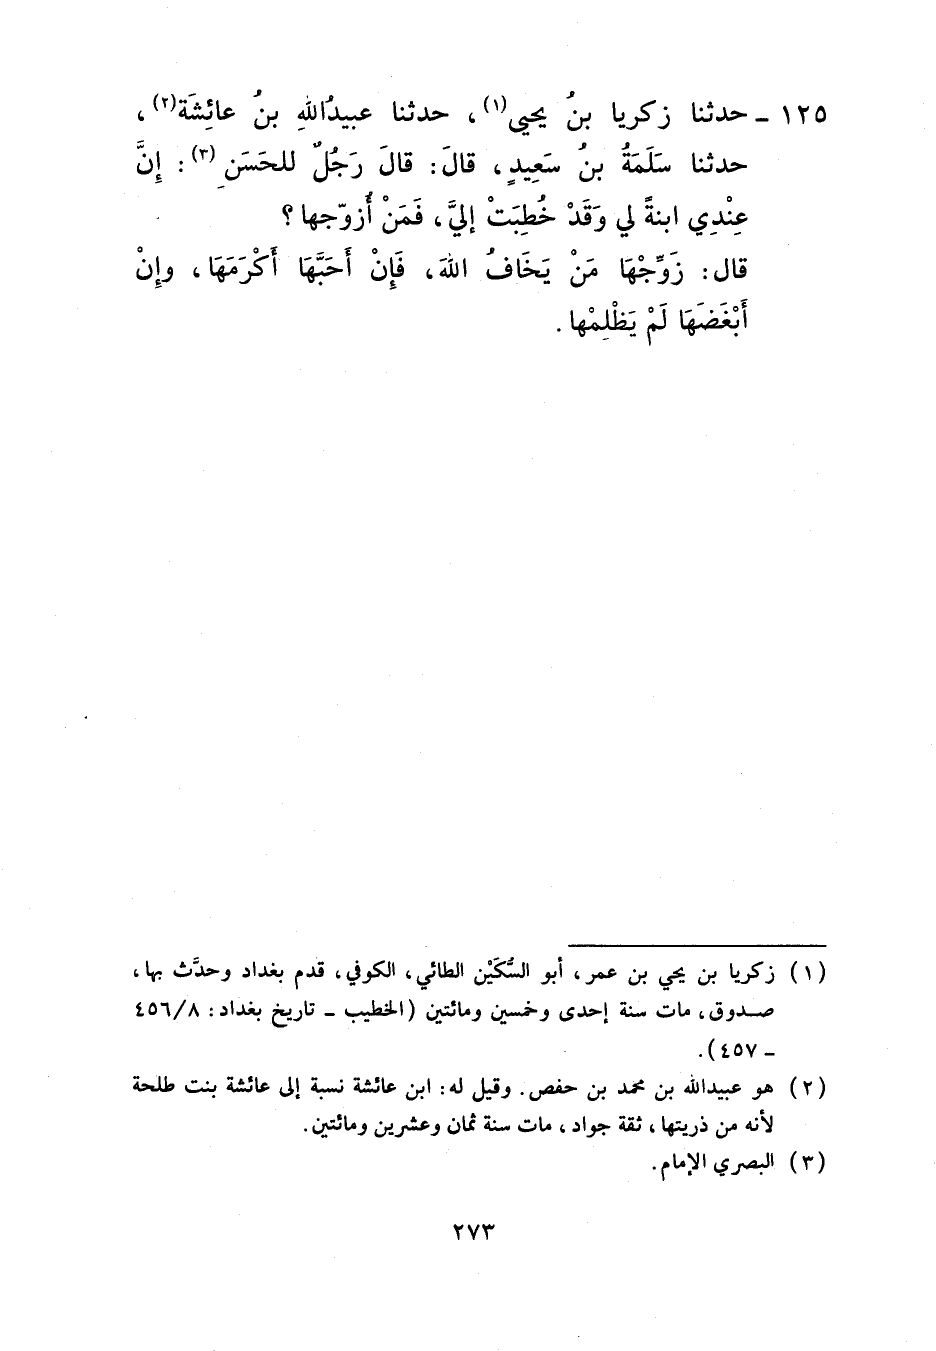 ١٢٥ ـ حدثنا زكريا بنُ يحيى(١)، حدثنا عبيدُاللهِ بنُ عائِشَة(٢)،
حدثنا سَلَمَةُ بنُ سَعِيدٍ، قالَ: قالَ رَجُلٌ للحَسَنِ(٣): إِنَّ
عِنْدِي ابنةً لي وَقَدْ خُطِبَتْ إليَّ، فَمَنْ أُزوّجها؟
قال: زَوِّجْهَا مَنْ يَخَافُ اللهَ، فَإِنْ أَحَبَّهَا أَكْرَمَهَا، وإِنْ
أَبْغَضَهَا لَمْ يَظْلِمْها.
(١) زكريا بن يحيى بن عمر، أبو السُّكَيْن الطائي، الكوفي، قدم بغداد وحدَّث بها،
صدوق، مات سنة إحدى وخمسين ومائتين (الخطيب ـ تاريخ بغداد: ٤٥٦/٨
ـ ٤٥٧).
(٢) هو عبيدالله بن محمد بن حفص. وقيل له: ابن عائشة نسبة إلى عائشة بنت طلحة
لأنه من ذريتها، ثقة جواد، مات سنة ثمان وعشرين ومائتين.
(٣) البصري الإمام.
٢٧٣